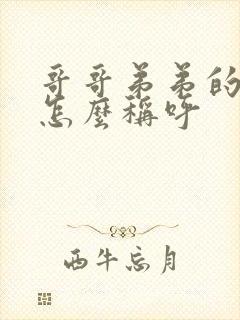 哥哥弟弟的
怎麼稱呼
西牛忘月